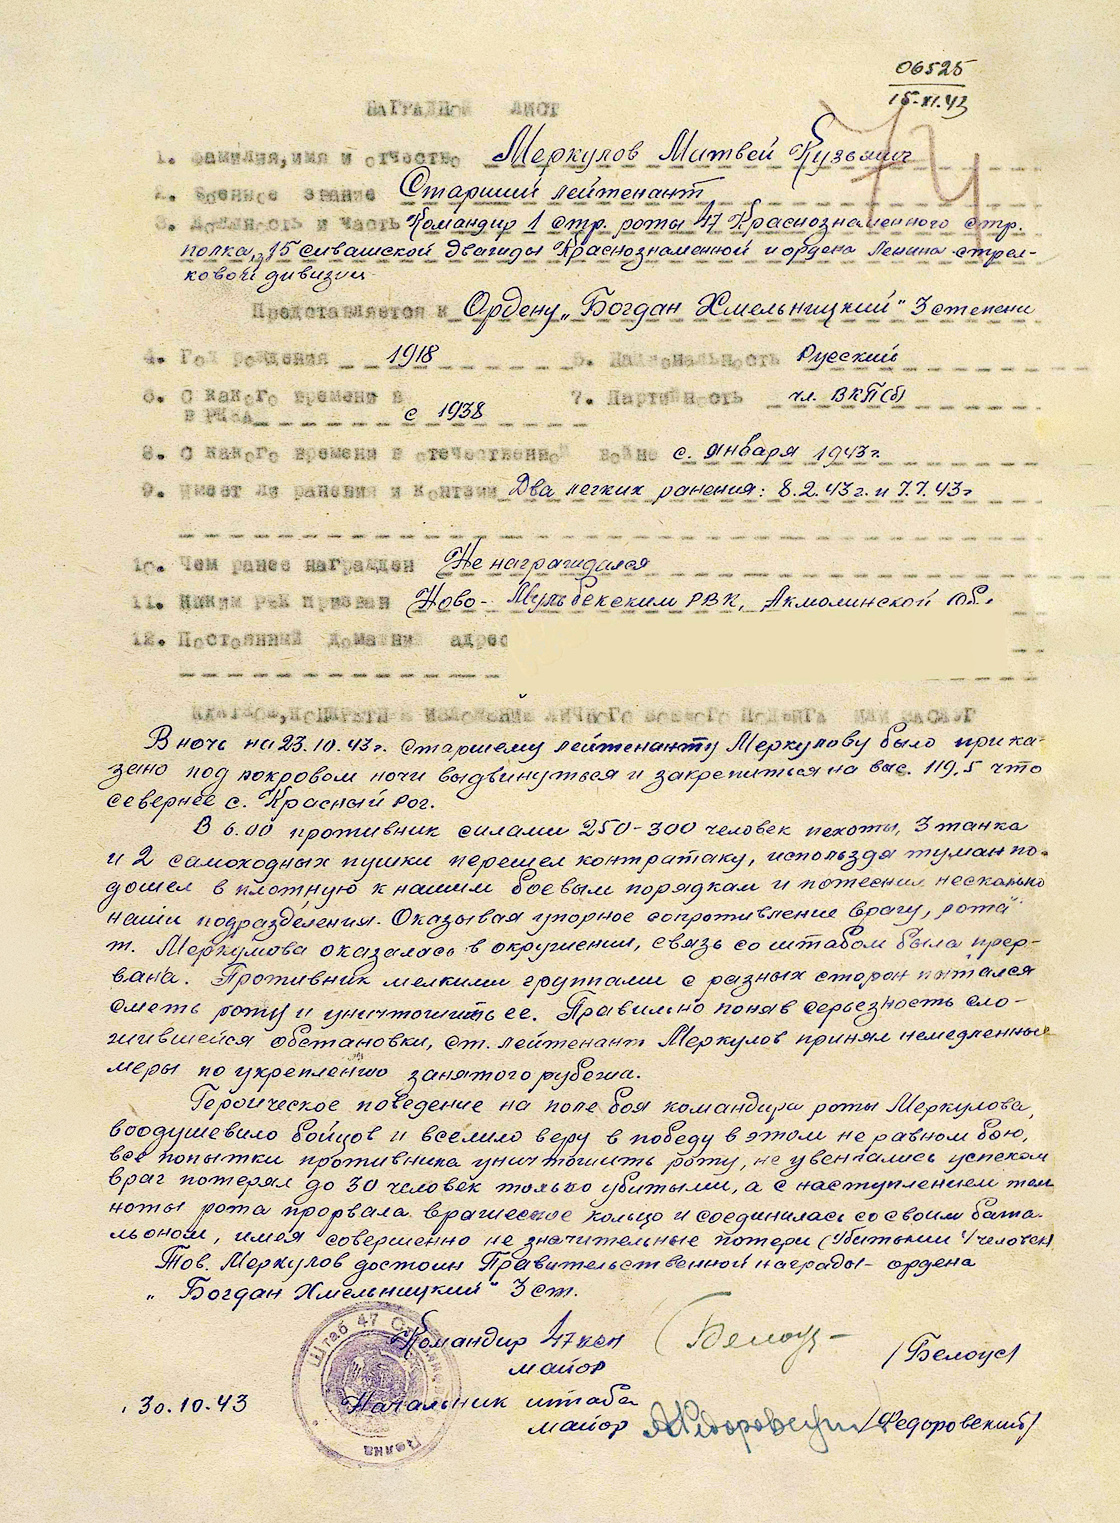 06525
15.XI.43
НАГРАДНОЙ ЛИСТ
1. Фамилия, имя и отчество Меркулов Матвей Кузьмич
2. Военное звание Старший лейтенант
3. Должность и часть Командир 1 стр. роты 47 Краснознаменного стр.
полка, 15 сивашской дважды Краснознаменной и ордена Ленина стрел-
ковой дивизии
Представляется к Ордену „Богдан Хмельницкий" 3 степени
4. Год рождения 1918 5. Национальность Русский
6. С какого времени в 7. Партийность чл. ВКП(б)
в РККА с 1938
8. С какого времени в отечественной войне с января 1943 г.
9. Имеет ли ранения и контузии Два легких ранения: 8.2.43 г. и 7.7.43 г
10. Чем ранее награжден Не награждался
11. Каким РВК призван Ново-Мульбекским РВК, Акмолинской обл.
12. Постоянный домашний адрес
КРАТКОЕ, КОНКРЕТНОЕ ИЗЛОЖЕНИЕ ЛИЧНОГО БОЕВОГО ПОДВИГА ИЛИ ЗАСЛУГ
В ночь на 23.10.43 г. старшему лейтенанту Меркулову было прика-
зано под покровом ночи выдвинуться и закрепиться на выс. 119,5 что
севернее с. Красный Рог.
В 6.00 противник силами 250-300 человек пехоты, 3 танка
и 2 самоходных пушки перешел контратаку, используя туман по-
дошел в плотную к нашим боевым порядкам и потеснил несколько
наши подразделения. Оказывая упорное сопротивление врагу, рота
т. Меркулова оказалась в окружении, связь со штабом была прер-
вана. Противник мелкими группами с разных сторон пытался
смять роту и уничтожить ее. Правильно поняв серьезность сло-
жившейся обстановки, ст. лейтенант Меркулов принял немедленные
меры по укреплению занятого рубежа.
Героическое поведение на поле боя командира роты Меркулова,
воодушевило бойцов и вселило веру в победу в этом не равном бою,
все попытки противника уничтожить роту, не увенчались успехом
враг потерял до 30 человек только убитыми, а с наступлением тем
ноты рота прорвала вражеское кольцо и соединилась со своим бата-
льоном, имея совершенно не значительные потери (убитыми 4 человек)
Тов. Меркулов достоин Правительственной награды - ордена
„Богдан Хмельницкий" 3 ст.
Командир 47 ксп Белоус
майор /Белоус/
30.10.43 Начальник штаба
майор АФедоровский /Федоровский/
Штаб 47
полка